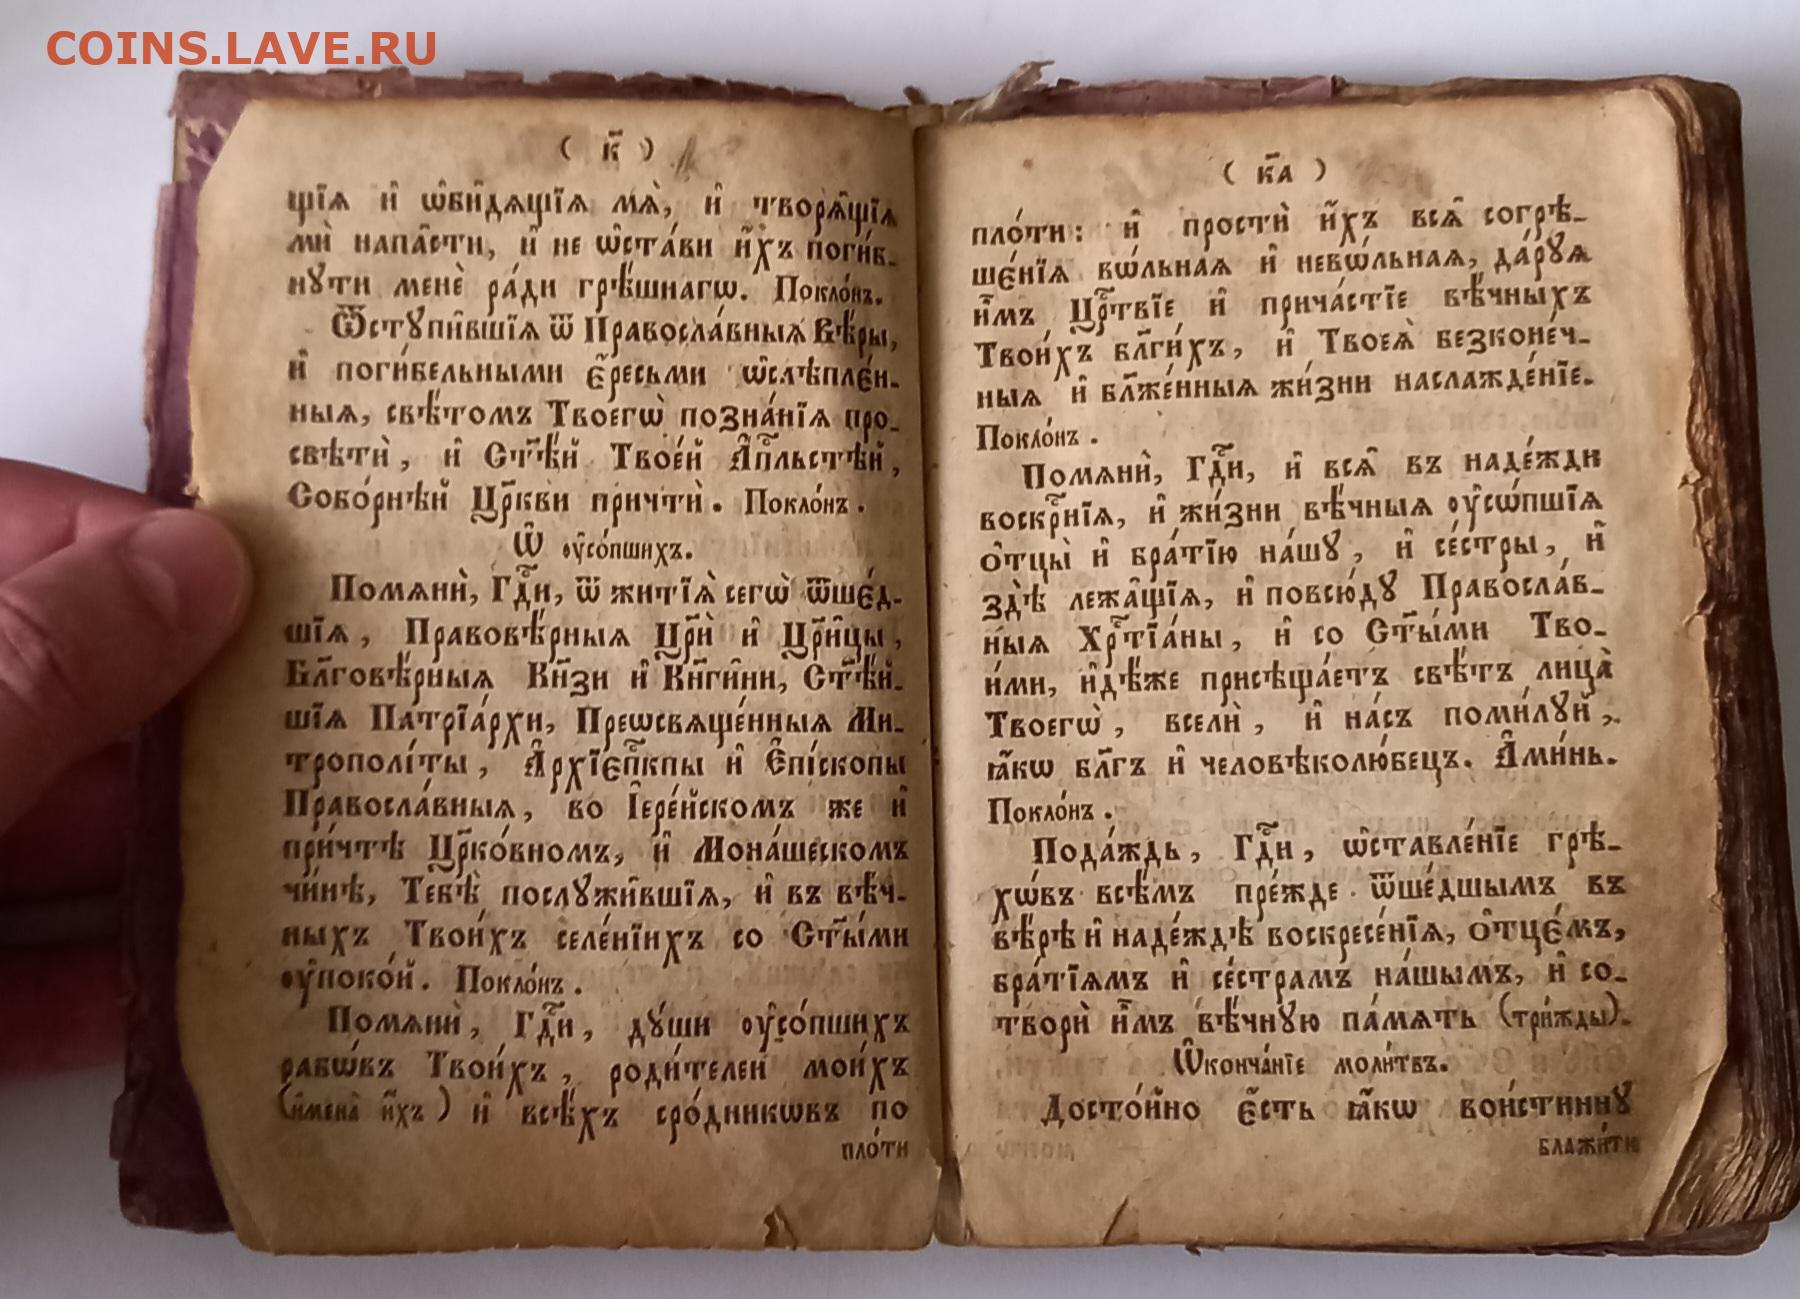 COINS.LAVE.RU
( к҃ )
щїѧ и҆ ѡ҆би́дѧщїѧ мѧ̀, и҆ творѧ́щїѧ
мѝ напа̑сти, и҆ не ѡ҆ста́ви и҆̀хъ поги́б-
нꙋти менѐ ра́ди грѣ́шнагѡ. Покло́нъ.
Ѿстꙋпи́вшїѧ ѿ Правосла́вныѧ Вѣ́ры,
и҆ поги́бельными є҆ресьми ѡ҆слѣпле́н-
ныѧ, свѣ́томъ Твоегѡ̀ позна́нїѧ про-
свѣтѝ, и҆ Ст҃ѣ́й Твое́й А҆пⷭ҇льстѣй,
Собо́рнѣй Цр҃кви причтѝ. Покло́нъ.
Ѡ҆ оу҆со́пшихъ.
Помѧнѝ, Гдⷭ҇и, ѿ житїѧ̀ сегѡ̀ ѿше́д-
шїѧ, Правовѣ́рныѧ Цр҃ѝ и҆ Цр҃и́цы,
Бл҃говѣ́рныѧ Кн҃зи и҆ Кн҃ги́ни, Ст҃ѣ́й-
шїѧ Патрїа́рхи, Преѡсвѧще́нныѧ Ми-
трополі́ты, А҆рхїеп҃кпы и҆ Є҆пі́скопы
Правосла́вныѧ, во І҆ере́йскомъ же и҆
при́чтѣ Цр҃ко́вномъ, и҆ Мона́шескомъ
чи́нѣ, Тебѣ̀ послꙋжи́вшїѧ, и҆ въ вѣ́ч-
ныхъ Твои́хъ селе́нїихъ со Ст҃ы́ми
оу҆поко́й. Покло́нъ.
Помѧнѝ, Гдⷭ҇и, дꙋ́ши оу҆со́пшихъ
рабѡ́въ Твои́хъ, роди́телей мои́хъ
(и҆мена̀ и҆́хъ) и҆ всѣ́хъ сро́дникѡвъ по
пло́ти
( к҃а )
пло́ти: и҆ простѝ и҆̀хъ всѧ̑ согрѣ-
ше́нїѧ вѡ́льнаѧ и҆ невѡ́льнаѧ, да́рꙋѧ
и҆̀мъ Црⷭ҇твіе и҆ прича́стїе вѣ́чныхъ
Твои́хъ бл҃ги́хъ, и҆ Твоеѧ̀ безконе́ч-
ныѧ и҆ бл҃же́нныѧ жи́зни наслажде́нїе.
Покло́нъ.
Помѧнѝ, Гдⷭ҇и, и҆ всѧ̑ въ наде́жди
воскрⷭ҇нїѧ, и҆ жи́зни вѣ́чныѧ оу҆сѡ́пшїѧ
ѻ҆тцы̀ и҆ бра́тїю на́шꙋ, и҆ се́стры, и҆
здѣ̀ лежа́щїѧ, и҆ повсю́дꙋ Правосла́в-
ныѧ Хрⷭ҇тїа́ны, и҆ со Ст҃ы́ми Тво-
и́ми, и҆дѣ́же присѣща́етъ свѣ́тъ лица̀
Твоегѡ̀, вселѝ, и҆ на́съ поми́лꙋй,
ꙗ҆́кѡ бл҃гъ и҆ человѣколю́бецъ. А҆ми́нь.
Покло́нъ.
Пода́ждь, Гдⷭ҇и, ѡ҆ставле́нїе грѣ-
хѡ́въ всѣ́мъ пре́жде ѿше́дшымъ въ
вѣ́рѣ и҆ наде́ждѣ воскресе́нїѧ, ѻ҆тце́мъ,
бра́тїѧмъ и҆ се́страмъ на́шымъ, и҆ со-
творѝ и҆̀мъ вѣ́чнꙋю па́мѧть (три́жды).
Ѡ҆конча́нїе моли́твъ.
Досто́йно є҆́сть ꙗ҆́кѡ вои́стиннꙋ
блажи́ти